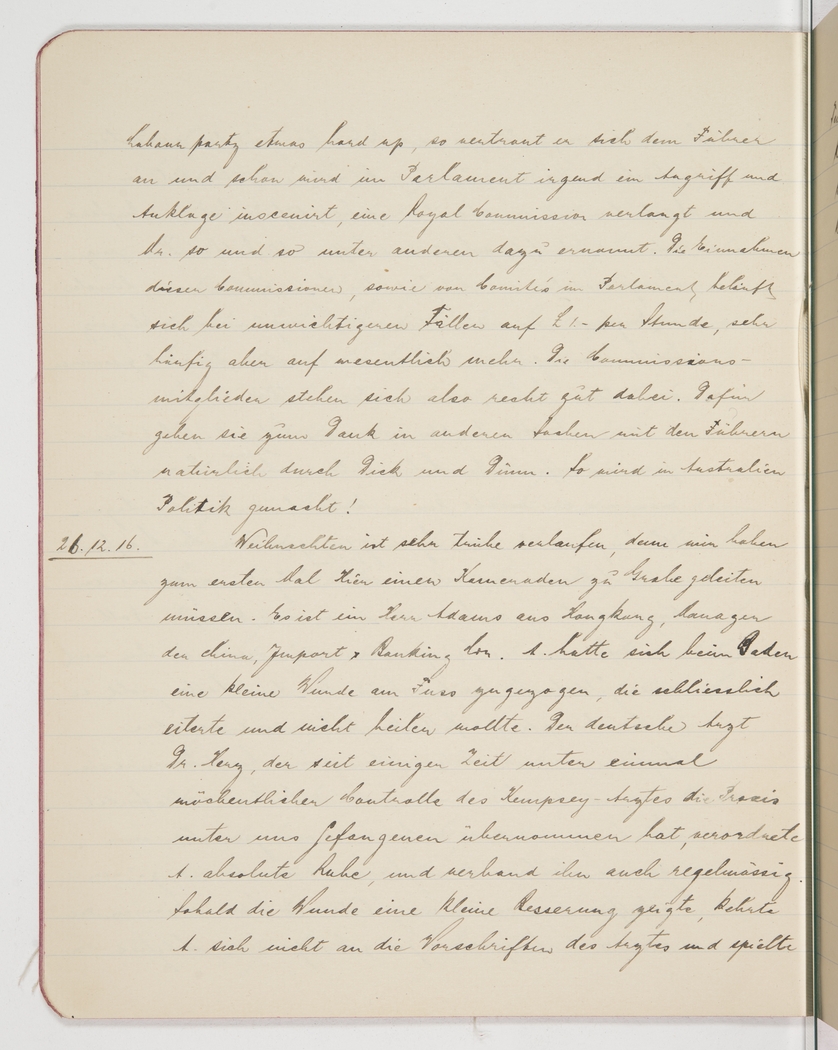 Labour party etwas hard up, so vertraut er sich dem Führer
an und schon wird im Parlament irgend ein Angriff und
Anklage inscenirt, eine Royal Commission verlangt und
Mr. so und so unter anderen dazu ernannt. Die Einnahmen
dieser Commissionen, sowie von Comités im Parlament, beläuft
sich bei unwichtigeren Fällen auf £ 1.- per Stunde, sehr
häufig aber auf wesentlich mehr. Die Commissions-
mitglieder stehen sich also recht gut dabei. Dafür
gehen sie zum Dank in anderen Sachen mit den Führern
natürlich durch Dick und Dünn. So wird in Australien
Politik gemacht!
26.12.16. Weihnachten ist sehr trübe verlaufen, denn wir haben
zum ersten Mal hier einen Kameraden zu Grabe geleiten
müssen. Es ist ein Herr Adams aus Hongkong, Manager
der China, Import & Banking Co. A. hatte sich beim Baden
eine kleine Wunde am Fuss zugezogen, die schliesslich
eiterte und nicht heilen wollte. Der deutsche Arzt
Dr. Herz, der seit einiger Zeit unter einmal
wöchentlicher Controlle des Kempsey-Arztes die Praxis
unter uns Gefangenen übernommen hat, verordnete
A. absolute Ruhe, und verband ihn auch regelmässig.
Sobald die Wunde eine kleine Besserung zeigte, kehrte
A. sich nicht an die Vorschriften des Arztes und spielte